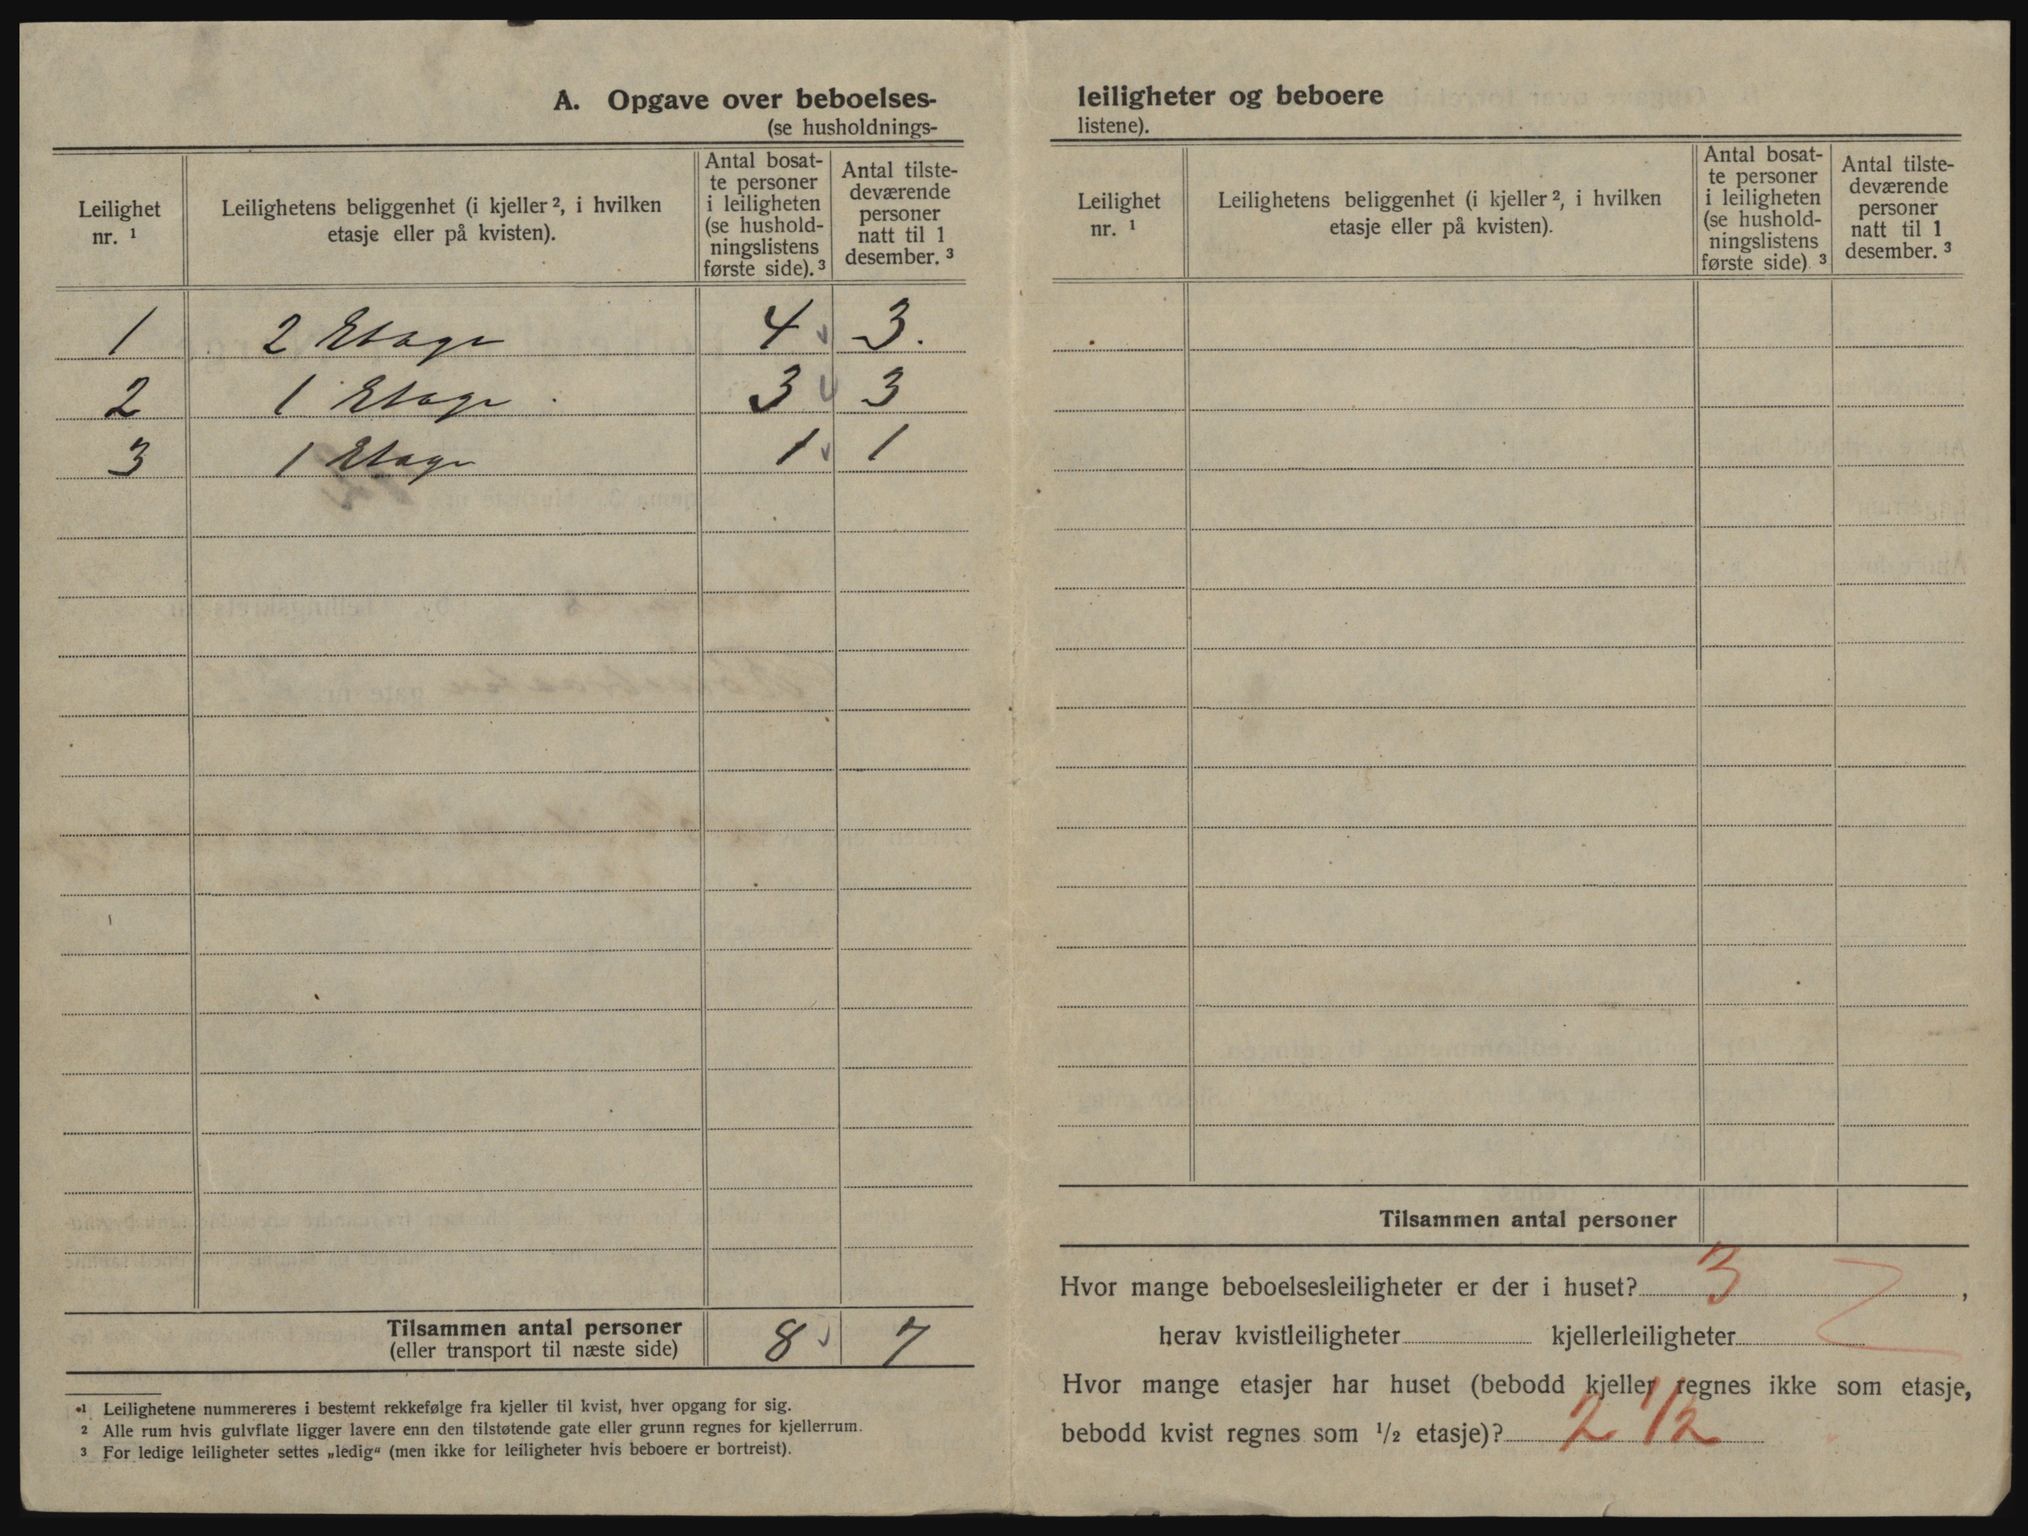 A. Opgave over beboelses-
(se husholdnings-
Leilighet
nr. 1
Leilighetens beliggenhet (i kjeller 2, i hvilken
etasje eller på kvisten).
Antal bosat-
te personer
i leiligheten
(se hushold-
ningslistens
første side). 3
Antal tilste-
deværende
personer
natt til 1
desember. 3
1 2 Etage 4 3.
2 1 Etage 3 3
3 1 Etage 1 1
Tilsammen antal personer
(eller transport til næste side)
8 7
1 Leilighetene nummereres i bestemt rekkefølge fra kjeller til kvist, hver opgang for sig.
2 Alle rum hvis gulvflate ligger lavere enn den tilstøtende gate eller grunn regnes for kjellerrum.
3 For ledige leiligheter settes „ledig“ (men ikke for leiligheter hvis beboere er bortreist).
leiligheter og beboere
listene).
Leilighet
nr. 1
Leilighetens beliggenhet (i kjeller 2, i hvilken
etasje eller på kvisten).
Antal bosat-
te personer
i leiligheten
(se hushold-
ningslistens
første side) 3
Antal tilste-
deværende
personer
natt til 1
desember. 3
Tilsammen antal personer
Hvor mange beboelsesleiligheter er der i huset? 3,
herav kvistleiligheter kjellerleiligheter
Hvor mange etasjer har huset (bebodd kjeller regnes ikke som etasje,
bebodd kvist regnes som 1/2 etasje)? 2 1/2